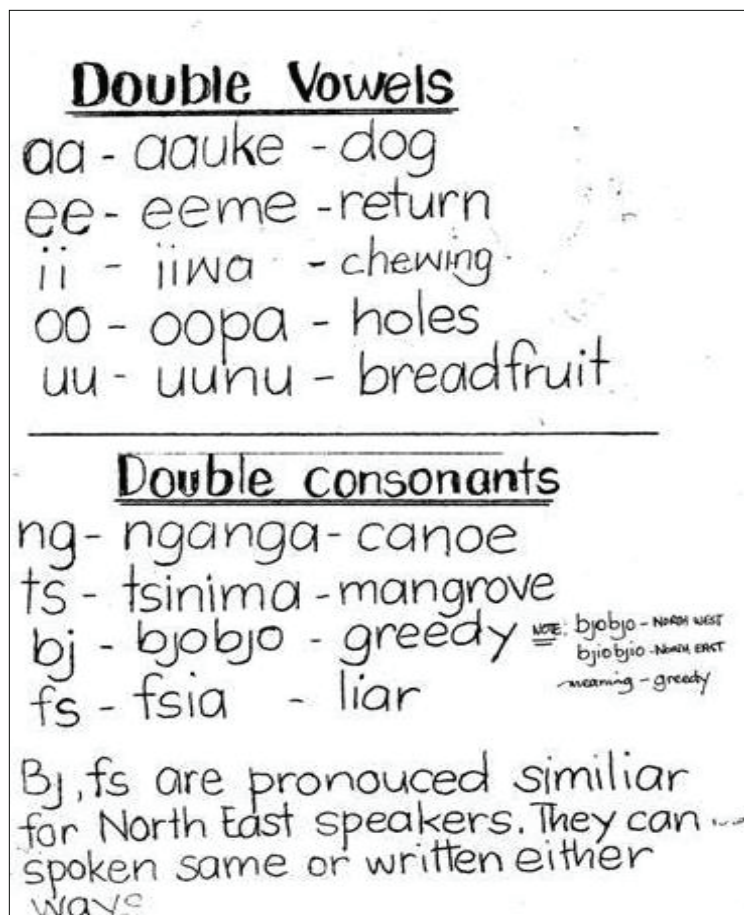 Double Vowels
aa - aauke - dog
ee - eeme - return
ii - iiwa - chewing
oo - oopa - holes
uu - uunu - breadfruit
Double consonants
ng - nganga - canoe
ts - tsinima - mangrove
bj - bjobjo - greedy NOTE: bjobjo - NORTH WEST
bjiobjio - NORTH EAST
fs - fsia - liar meaning - greedy
Bj, fs are pronouced similiar
for North East speakers. They can
spoken same or written either
ways